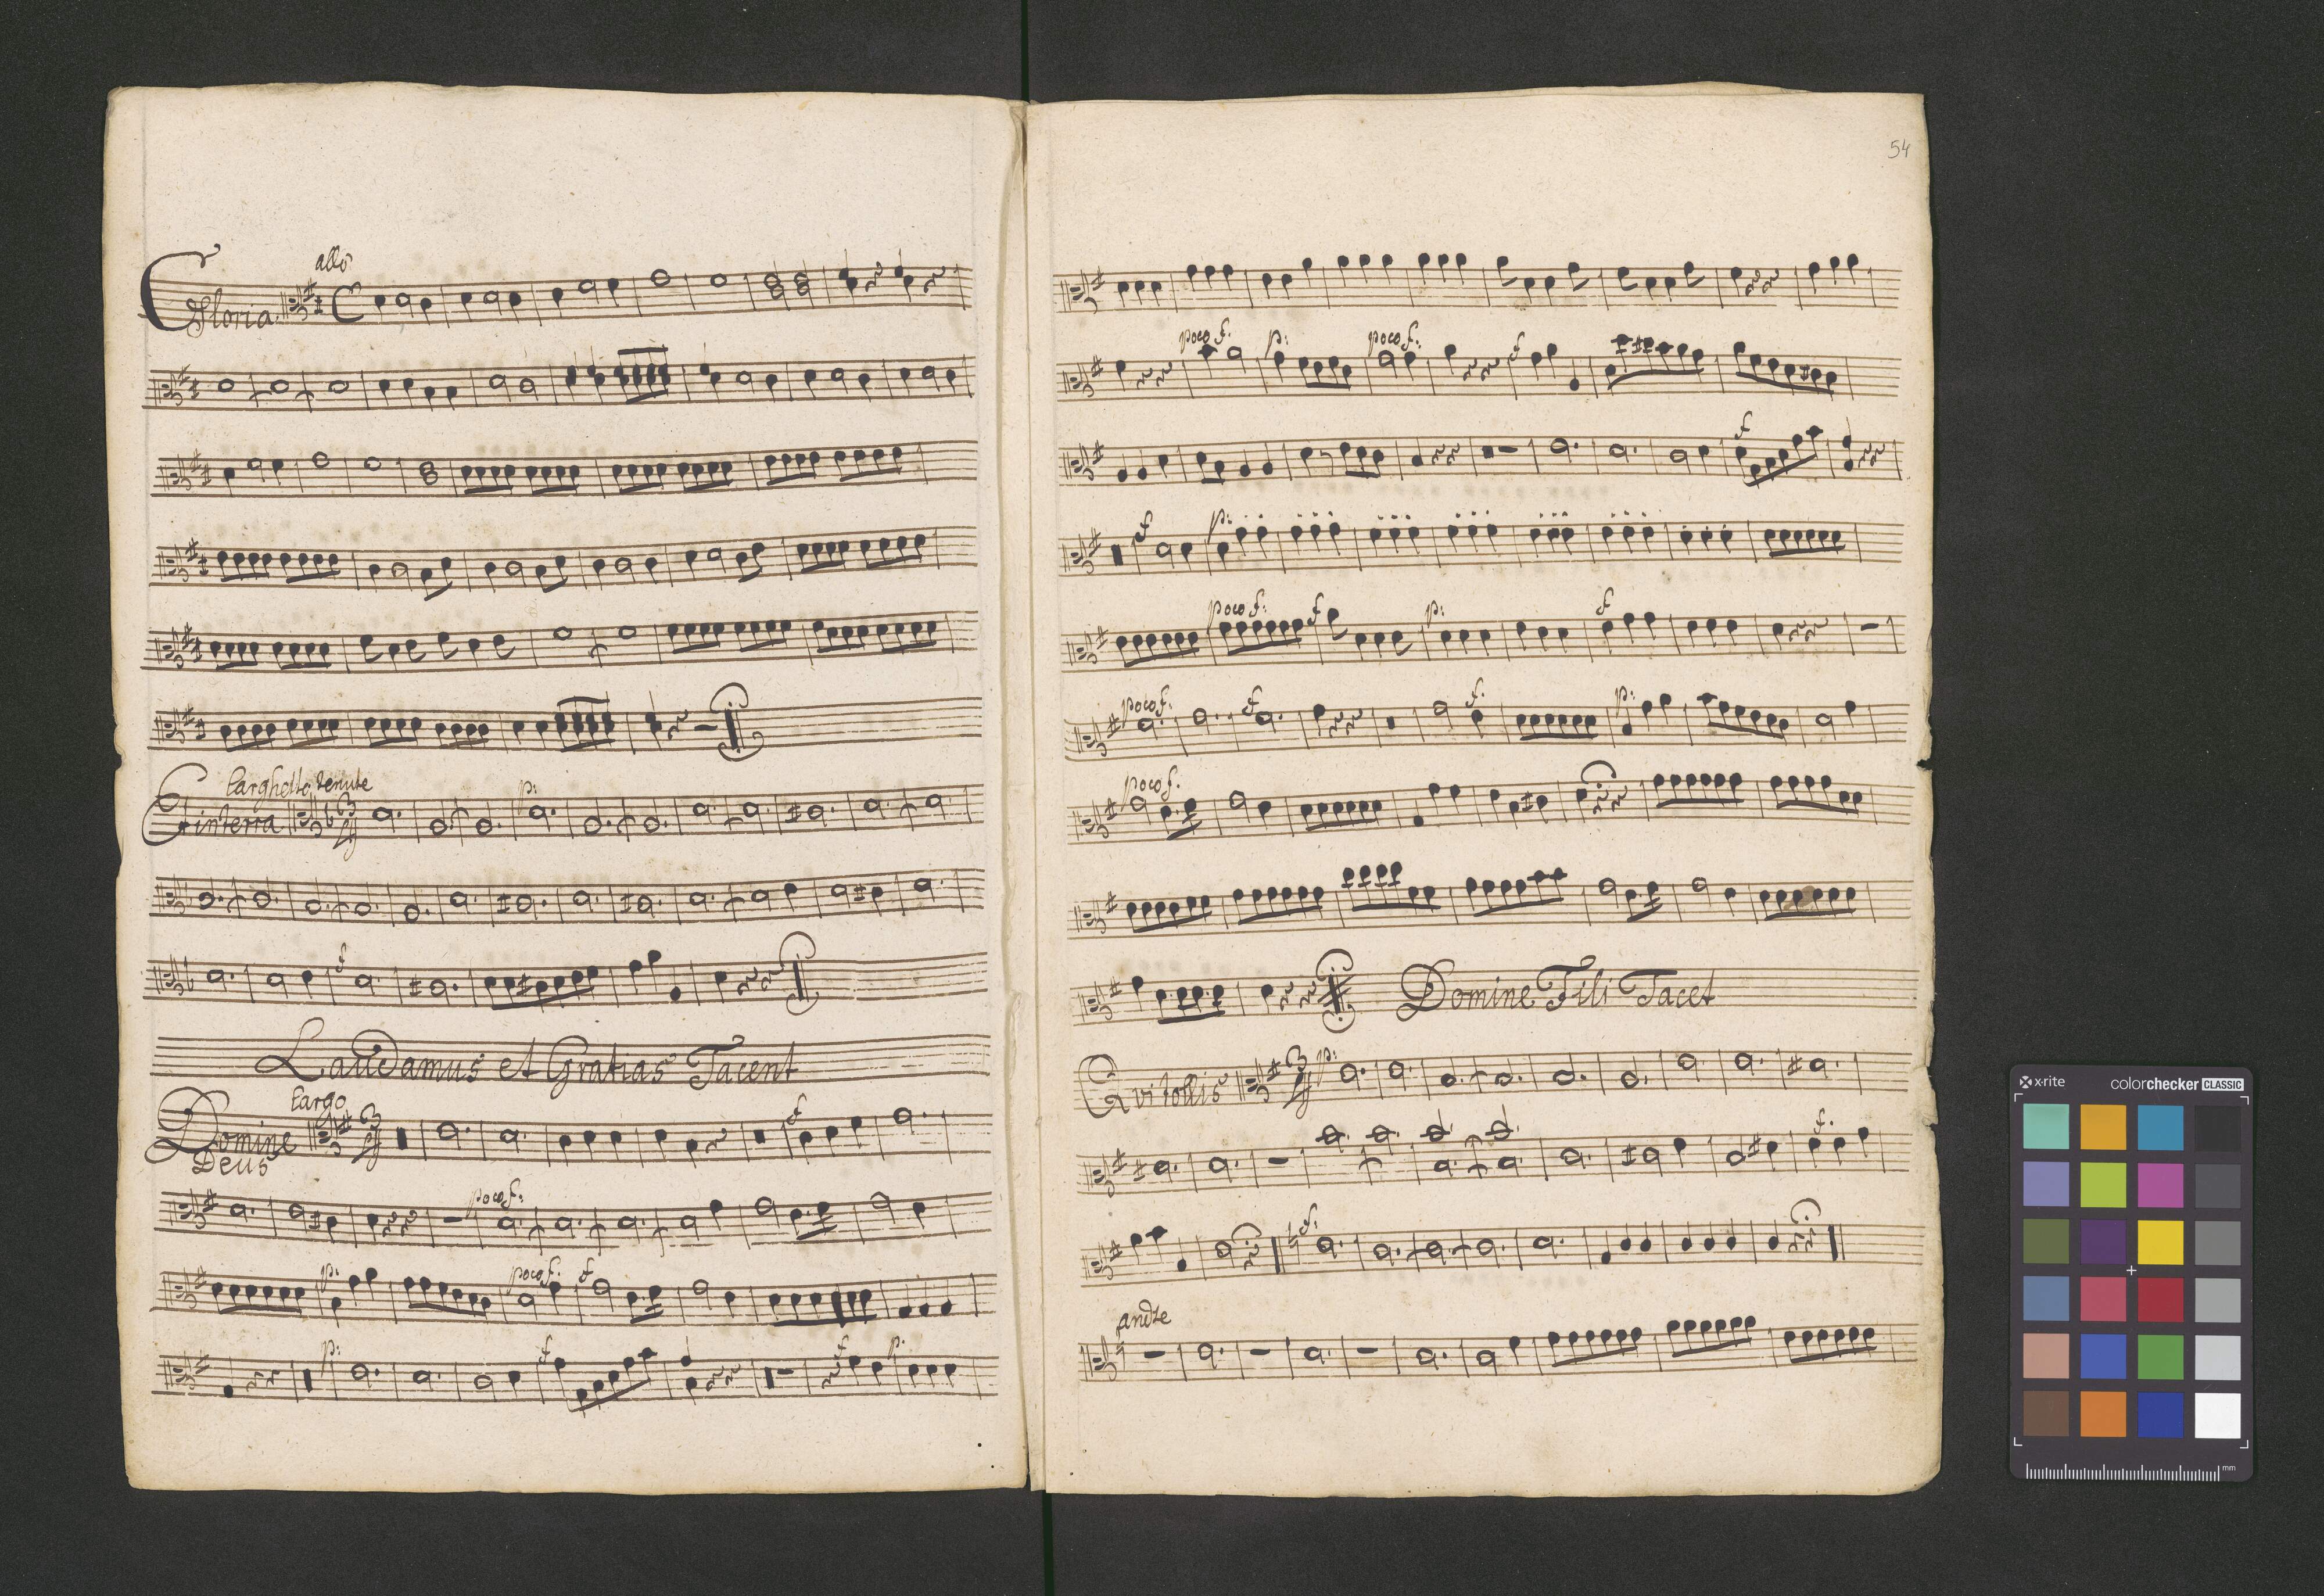 allo
Gloria
Larghetto tenute
Et in terra
p:
f
Laudamus et Gratias Tacent
Largo
Domine
Deus
f
poco f:
p: poco f: f
p: f f p:
54
poco f: p: poco f: f
f
f p:
poco f: f p: f
poco f: f f. p:
poco f:
Domine Fili Tacet
Qui tollis p:
f.
f.
andte
x-rite colorchecker CLASSIC
mm